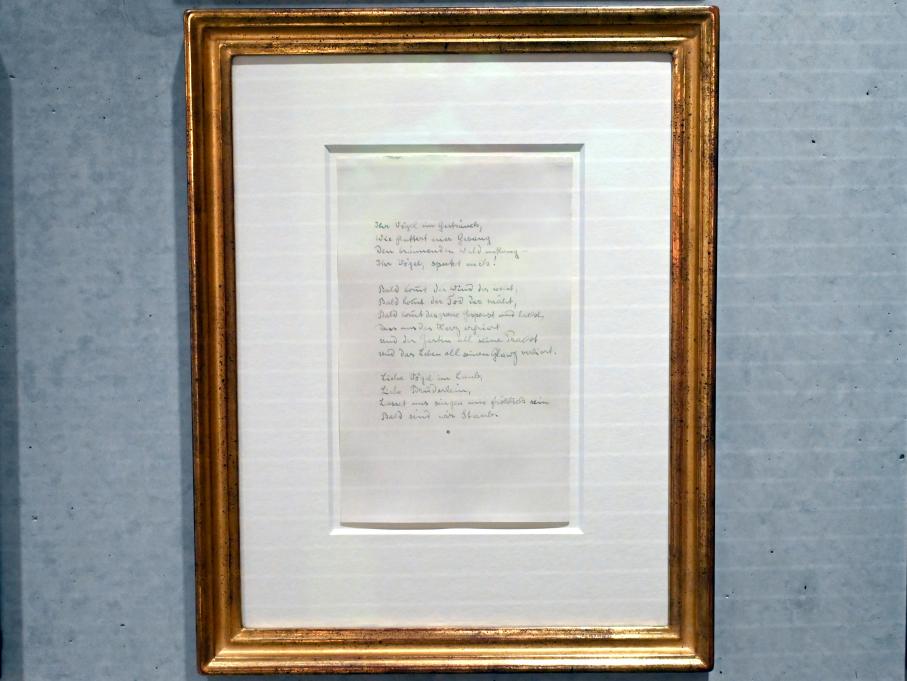 Ihr Vögel im Gesträuch,
Wie flattert euer Gesang
Den bräunenden Wald entlang –
Ihr Vögel, sputet euch!
Bald kommt der Wind der weht,
Bald kommt der Tod der mäht,
Bald kommt das graue Gespenst und lacht,
Dass uns das Herz erfriert
Und der Garten all seine Pracht
Und das Leben all seinen Glanz verliert.
Liebe Vögel im Laub,
Liebe Brüderlein,
Lasset uns singen und fröhlich sein
Bald sind wir Staub.